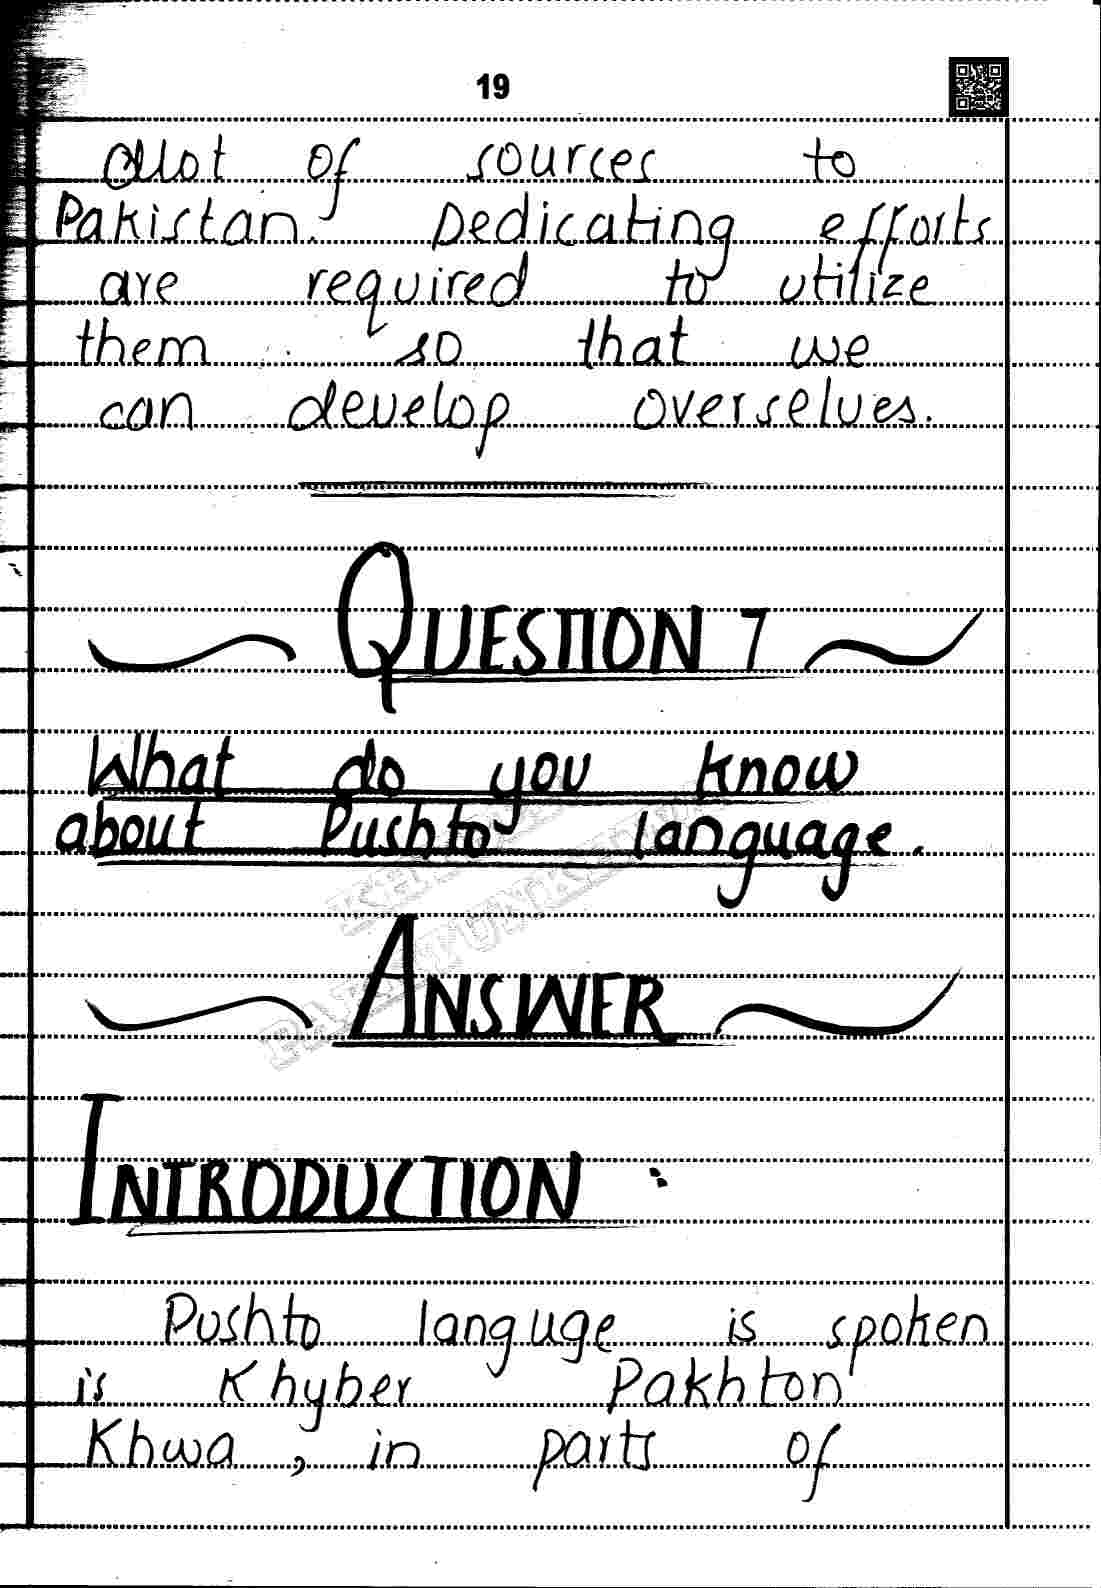 19
allot of sources to
Pakistan. Dedicating efforts
are required to utilize
them so that we
can develop overselves.
QUESTION 7
What do you know
about Pushto language.
ANSWER
INTRODUCTION :
Pushto languge is spoken
is Khyber Pakhton
Khwa, in parts of